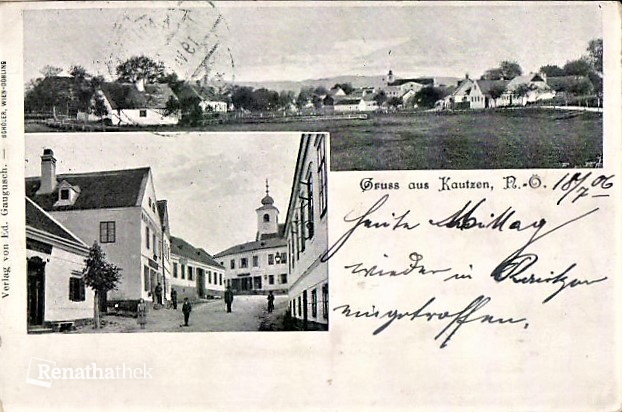 Gruss aus Kautzen, N.-Ö. 18/7 06
heute Mittag
wieder in
eingetroffen.
Verlag von Ed. Gaugusch. — SCHÖLER, WIEN-DÖBLING
Renathathek